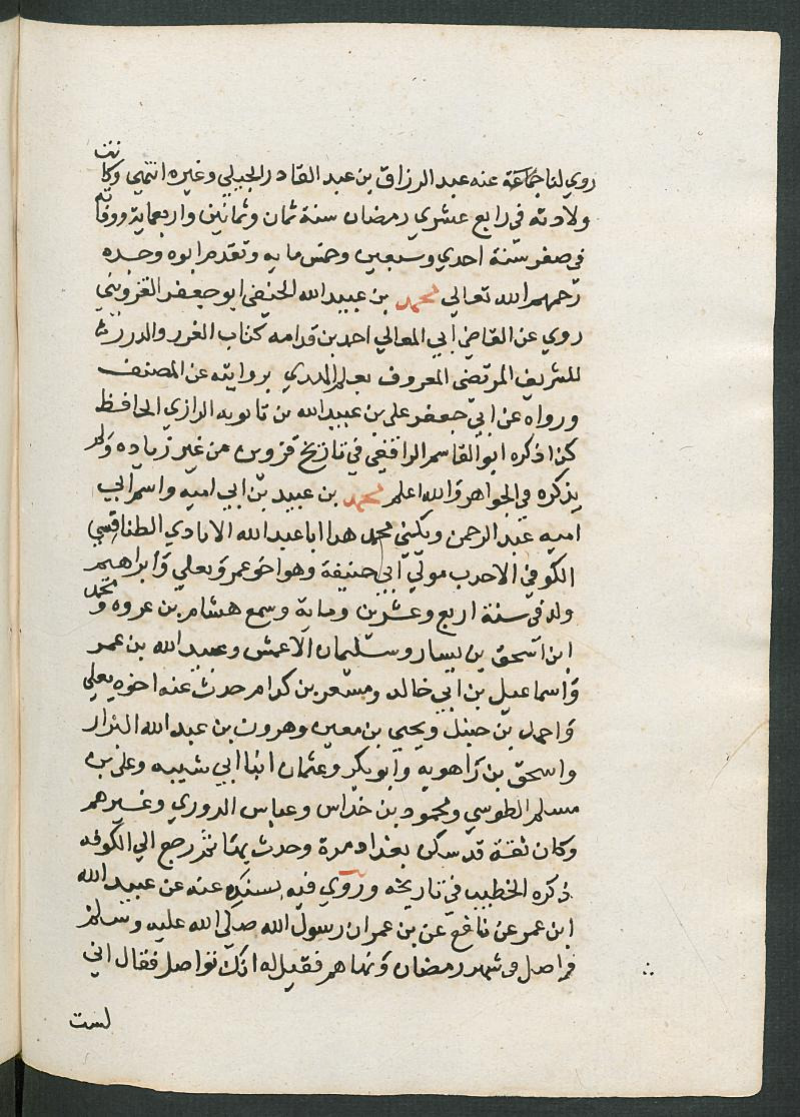 روي لنا جماعة عنه عبد الرزاق بن عبد القادر الجيلي وغيره انتهي وكانت
ولادته في رابع عشري رمضان سنة ثمان وثمانين واربعماية ووفاته
في صفر سنة احدي وسبعين وخمس مايه وتقدم ابوه وجده
رحمهم الله تعالي محمد بن عبيد الله الحنفي ابو جعفر القزويني
روي عن القاضي ابي المعالي احمد بن قدامه كتاب الغرر والدرر
للشريف المرتضي المعروف بعلم الهدي بروايته عن المصنف
ورواه عن ابي جعفر علي بن عبيد الله بن بانويه الرازي الحافظ
كذا ذكره ابو القاسم الرافعي في تاريخ قزوين من غير زياده ولم
يذكره في الجواهر والله اعلم محمد بن عبيد بن ابي اميه واسم ابي
اميه عبد الرحمن ويكني محمد هذا ابا عبد الله الايادي الطنافسي
الكوفي الاحدب مولي ابي حنيفة وهو اخو عمر ويعلي وابراهيم
ولد في سنة اربع وعشرين وماية وسمع هشام بن عروه ومحمد
ابن اسحق بن يسار وسليمان الاعمش وعبيد الله بن عمر
واسماعيل بن ابي خالد ومسعر بن كدام حدث عنه اخوه يعلي
واحمد بن حنبل ويحيي بن معين وهرون بن عبد الله البزار
واسحق بن راهويه وابو بكر وعثمان ابنا ابي شيبه وعلي بن
مسلم الطوسي ومحمود بن خداس وعباس الدوري وغيرهم
وكان ثقة قد سكن بغداد مدة وحدث بها ثم رجع الي الكوفه
ذكره الخطيب في تاريخه وروي فيه بسنده عنه عن عبيد الله
ابن عمر عن نافع عن بن عمر ان رسول الله صلي الله عليه وسلم
واصل في شهر رمضان ونهاهم فقيل له انك تواصل فقال اني
لست